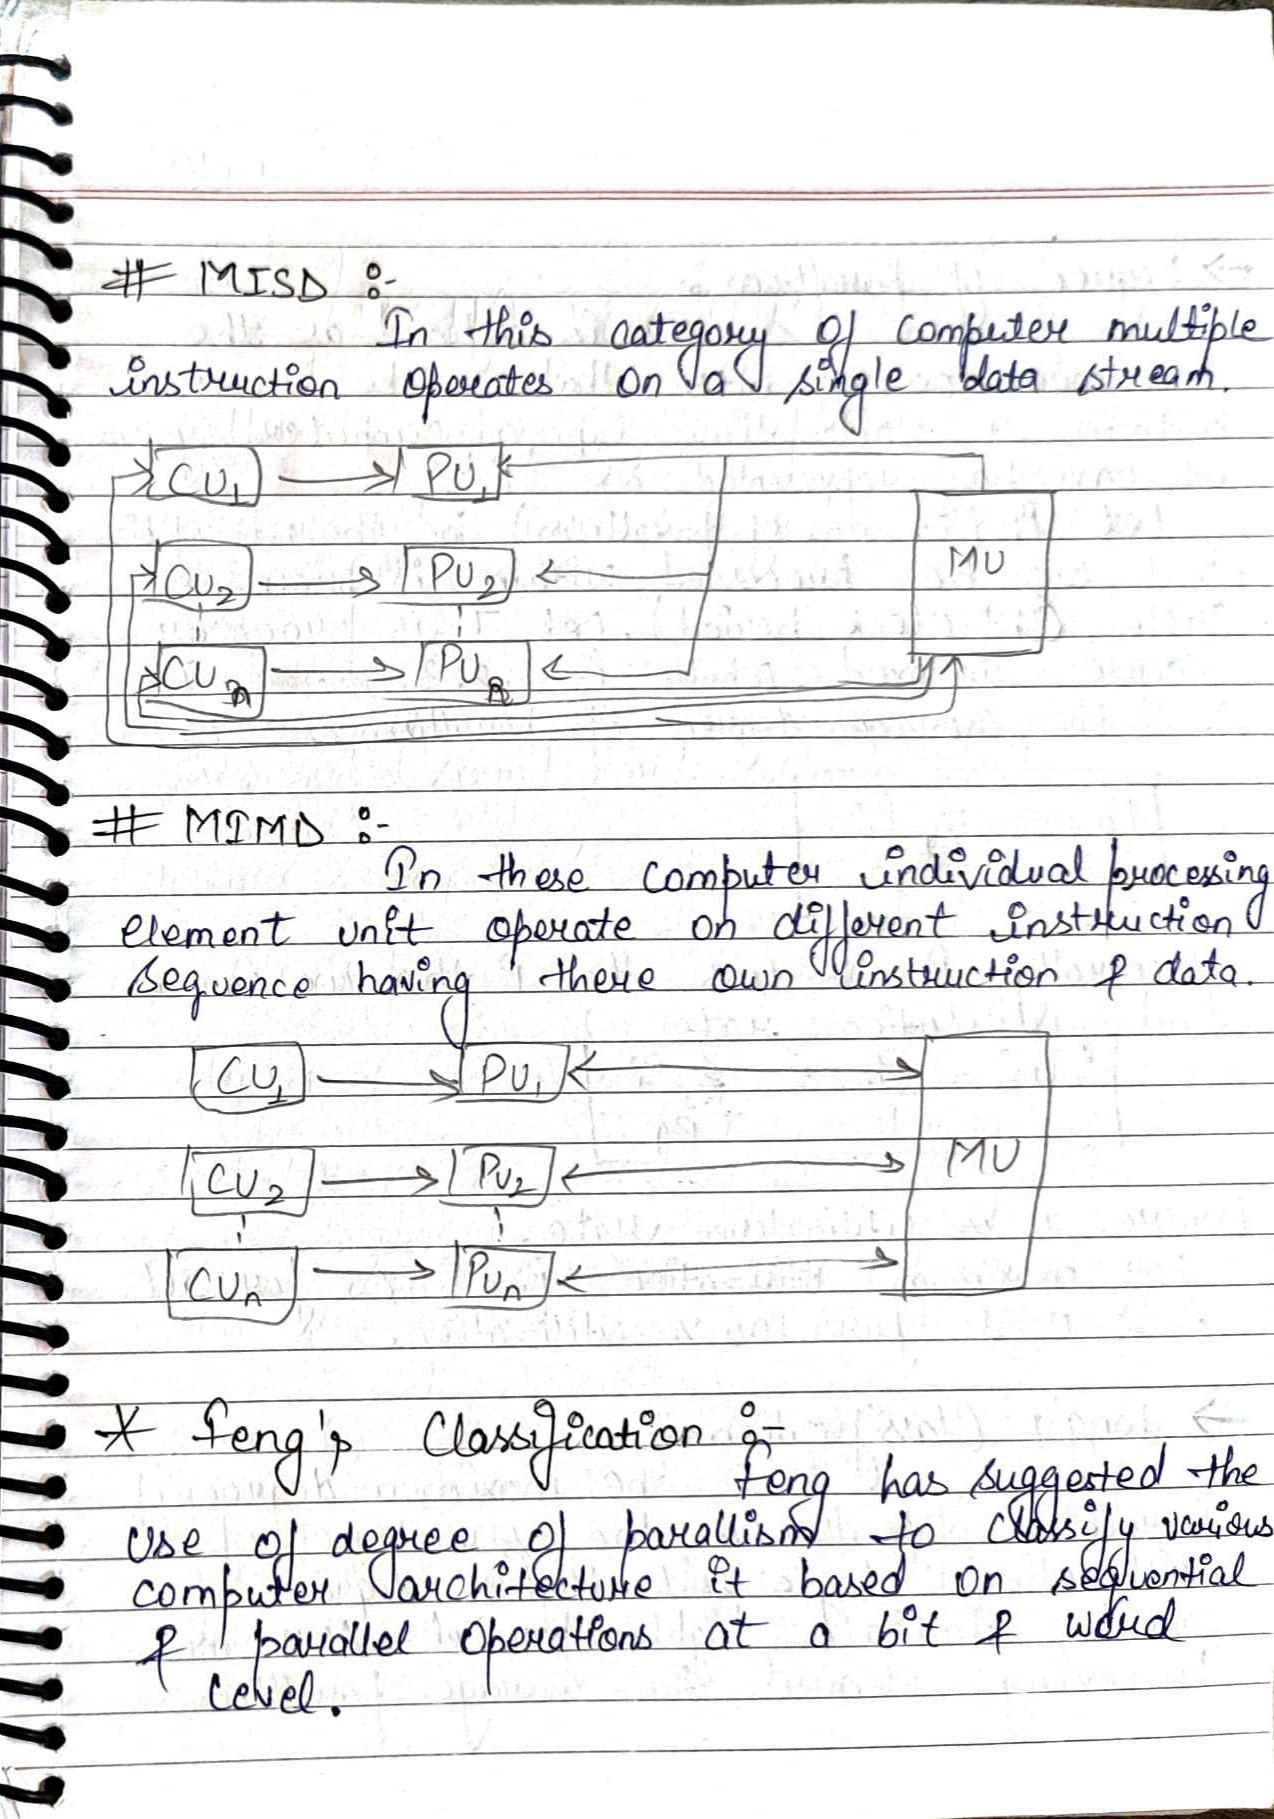 # MISD :-
In this category of computer multiple
instruction operates on a single data stream.
CU1 PU1
MU
CU2 PU2
CUn PUn
# MIMD :-
In these computer individual processing
element unit operate on different instruction
sequence having there own instruction & data.
CU1 PU1
CU2 PU2 MU
CUn PUn
* Feng's Classification :-
Feng has suggested the
use of degree of parallism to classify various
computer architecture it based on sequential
& parallel operations at a bit & word
level.